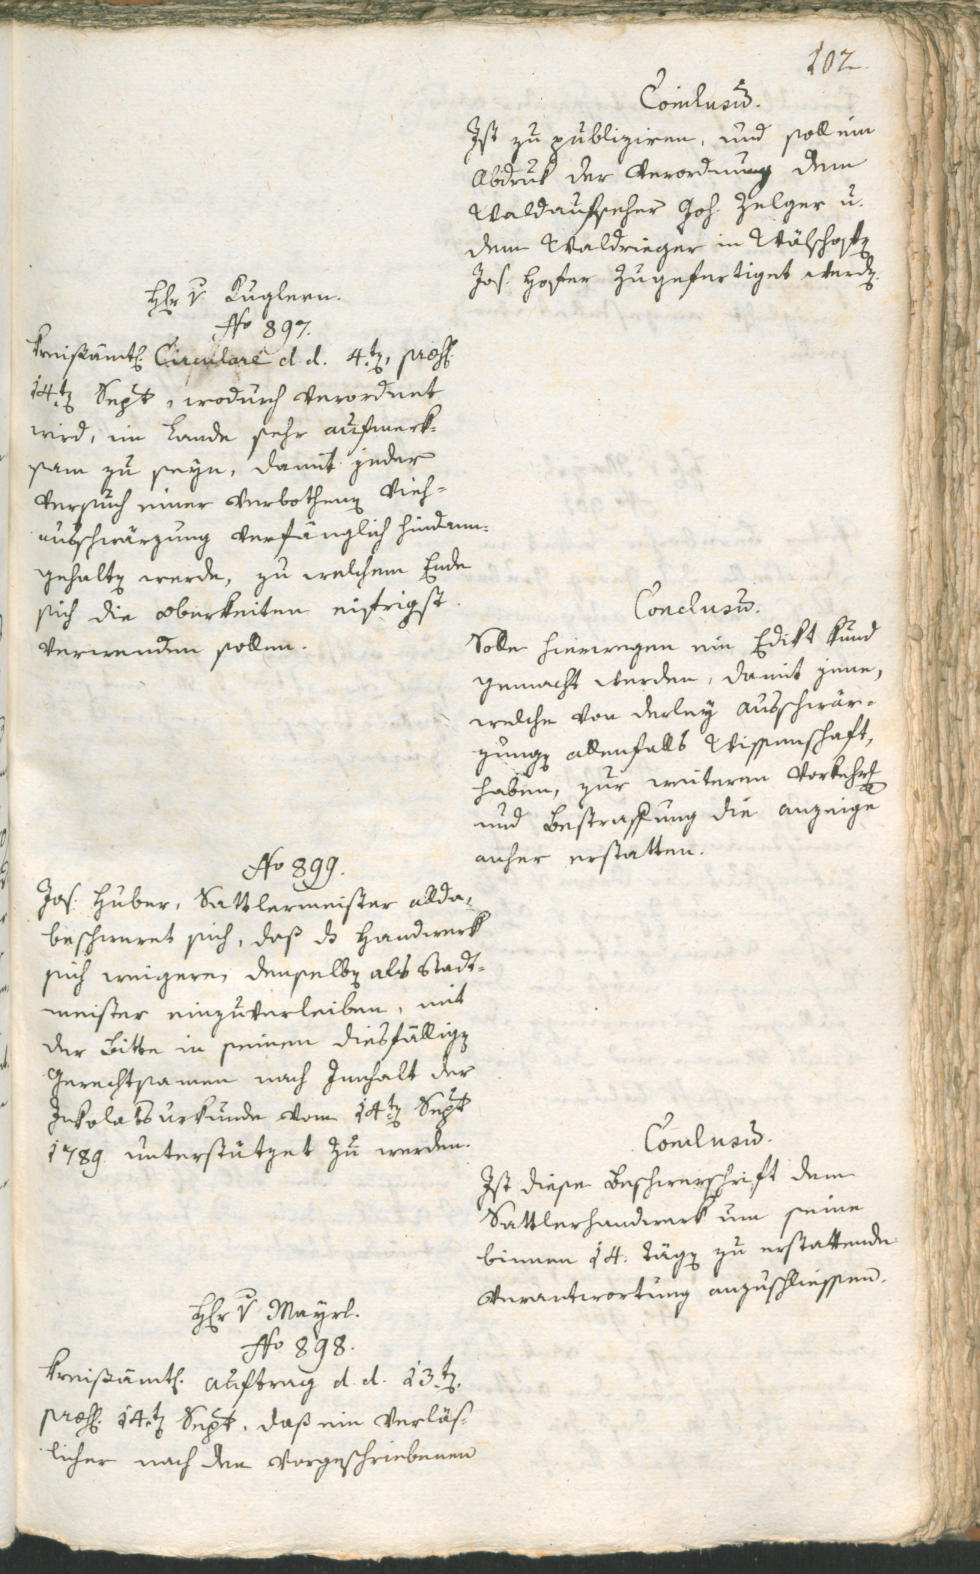 102.
Conclusum.
Ist zu publiziren, und soll ein
Abdruk der Verordnung dem
Waldaufseher Joh. Zelger u.
dem Waldrieger in Wälschofen
Jos. Hofer zugefertiget werden.
Hr v Kuglern.
No 897.
Kreißämtl. Circulare d. d. 4.ten, præs.
14.ten Sept, wodurch verordnet
wird, im Lande sehr aufmerk-
sam zu seyn, damit jeder
Versuch einer verbothenen Vieh-
ausschwärzung verfänglich hindann-
gehalten werde, zu welchem Ende
sich die Oberkeiten eifrigst
verwenden sollen.
Conclusum.
Solle hierwegen ein Edikt kund
gemacht werden, damit jene,
welche von derley Ausschwär-
zungen allenfalls Wissenschaft
haben, zur weiteren Vorkehr
und Bestraffung die Anzeige
anher erstatten.
No 899.
Jos. Huber, Sattlermeister allda,
beschweret sich, daß das Handwerk
sich weigere, denselben als Stadt-
meister einzuverleiben, mit
der Bitte in seinen diesfälligen
Gerechtsamen nach Innhalt der
Inkolatsurkunde vom 14.ten Sept
1789 unterstützet zu werden.
Conclusum.
Ist diese Beschwerschrift dem
Sattlerhandwerk um seine
binnen 14. Tägen zu erstattende
Verantwortung anzuschliessen.
Hr v Mayrl.
No 898.
Kreißämtl. Auftrag d. d. 13.ten,
præs. 14.ten Sept, daß ein verläs-
licher nach dem vorgeschriebenen